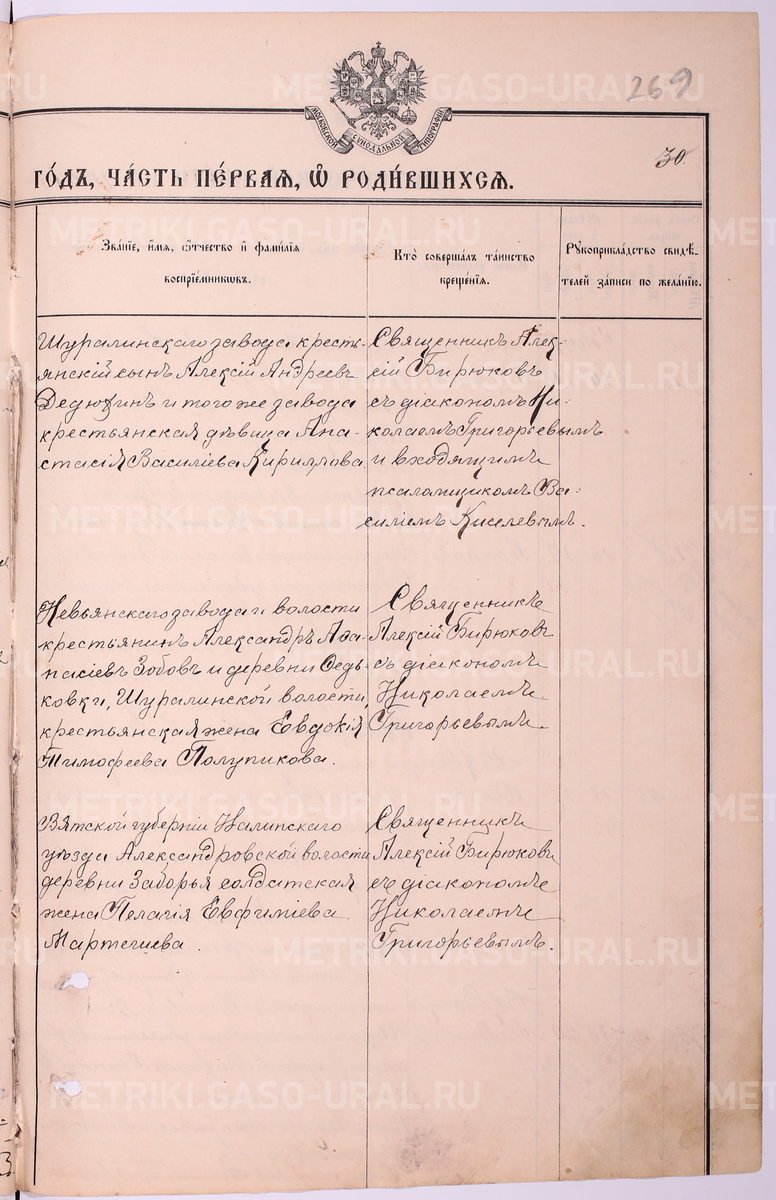 269
МОСКОВСКОЙ СѴНОДАЛЬНОЙ ТИПОГРАФІИ
30.
ГО́ДЪ, ЧА́СТЬ ПЕ́РВАЯ, Ѡ҆ РОДИ́ВШИХСЯ.
Зва́нїе, и҆́мя, ѻ҆́тчество и҆ фами́лїя
воспрїе́мникѡвъ.
Кто̀ соверша́лъ та́инство
креще́нїя.
Рꙋкоприкла́дство свидѣ́-
телей за́писи по жела́нїю.
Шуралинскаго завода кресть-
янскій сынъ Алексій Андреевъ
Дедюхинъ и того же завода
крестьянская дѣвица Ана-
стасія Василіева Кириллова
Священникъ Алек-
сій Бирюковъ
съ діакономъ Ни-
колаемъ Григорьевымъ
и входящимъ
псаломщикомъ Ва-
силіемъ Киселевымъ.
Невьянскаго завода и волости
крестьянинъ Александръ Аѳа-
насіевъ Зобовъ и деревни Федь-
ковки, Шуралинской волости,
крестьянская жена Евдокія
Тимофеева Полупикова.
Священникъ
Алексій Бирюковъ
съ діакономъ
Николаемъ
Григорьевымъ.
Вятской губерніи Нолинскаго
уѣзда Александровской волости
деревни Заборья солдатская
жена Пелагія Евфиміева
Священникъ
Алексій Бирюковъ
съ діакономъ
Николаемъ
Григорьевымъ.
METRIKI.GASO-URAL.RU